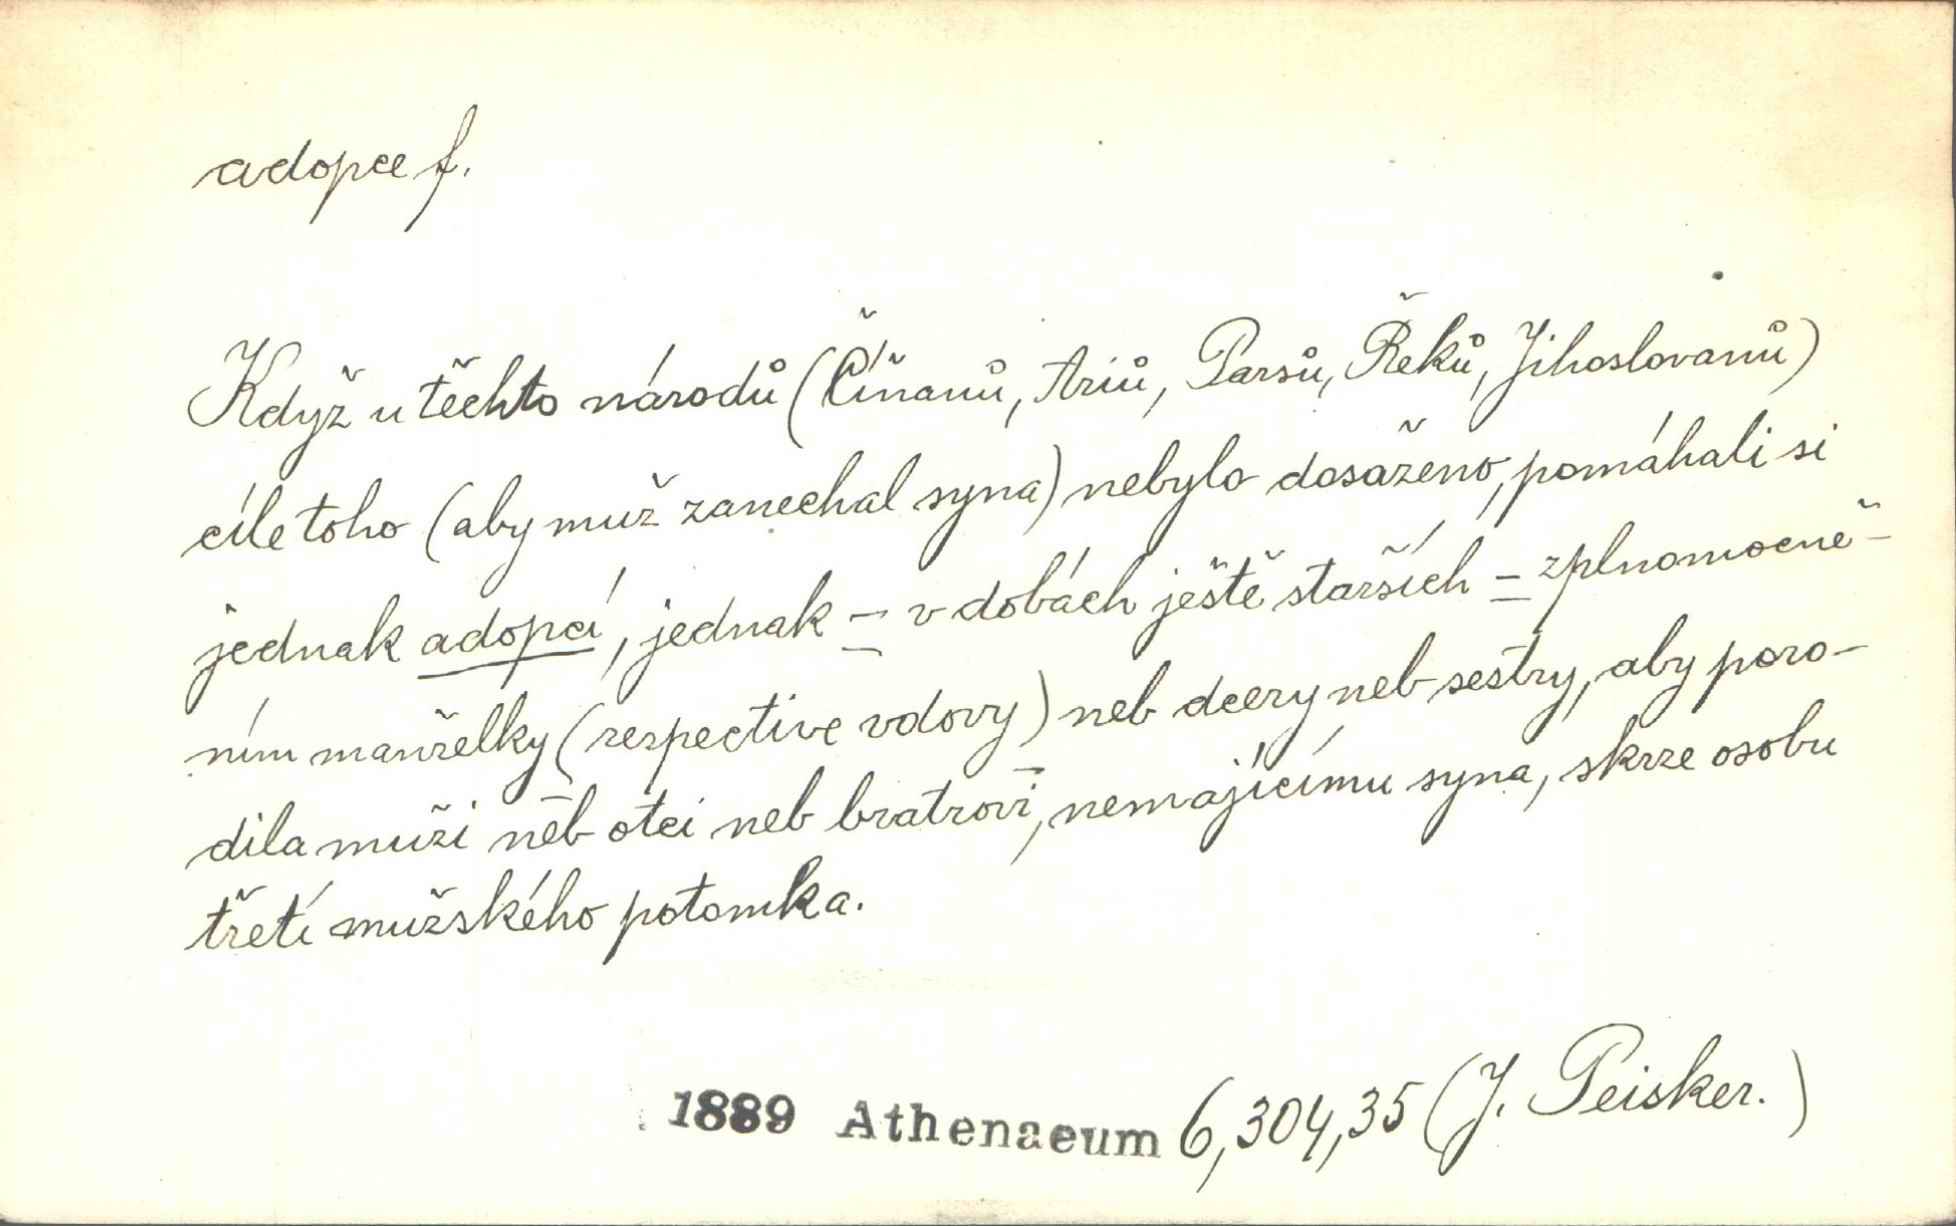 adopce f.
Když u těchto národů (Číňanů, Ariů, Parsů, Řeků, Jihoslovanů)
cíle toho (aby muž zanechal syna) nebylo dosaženo, pomáhali si
jednak adopcí, jednak – v dobách ještě starších – zplnomocně-
ním manželky (respective vdovy) neb dcery neb sestry, aby poro-
dila muži neb otci neb bratrovi, nemajícímu syna, skrze osobu
třetí mužského potomka.
1889 Athenaeum 6,304,35 (J. Peisker.)